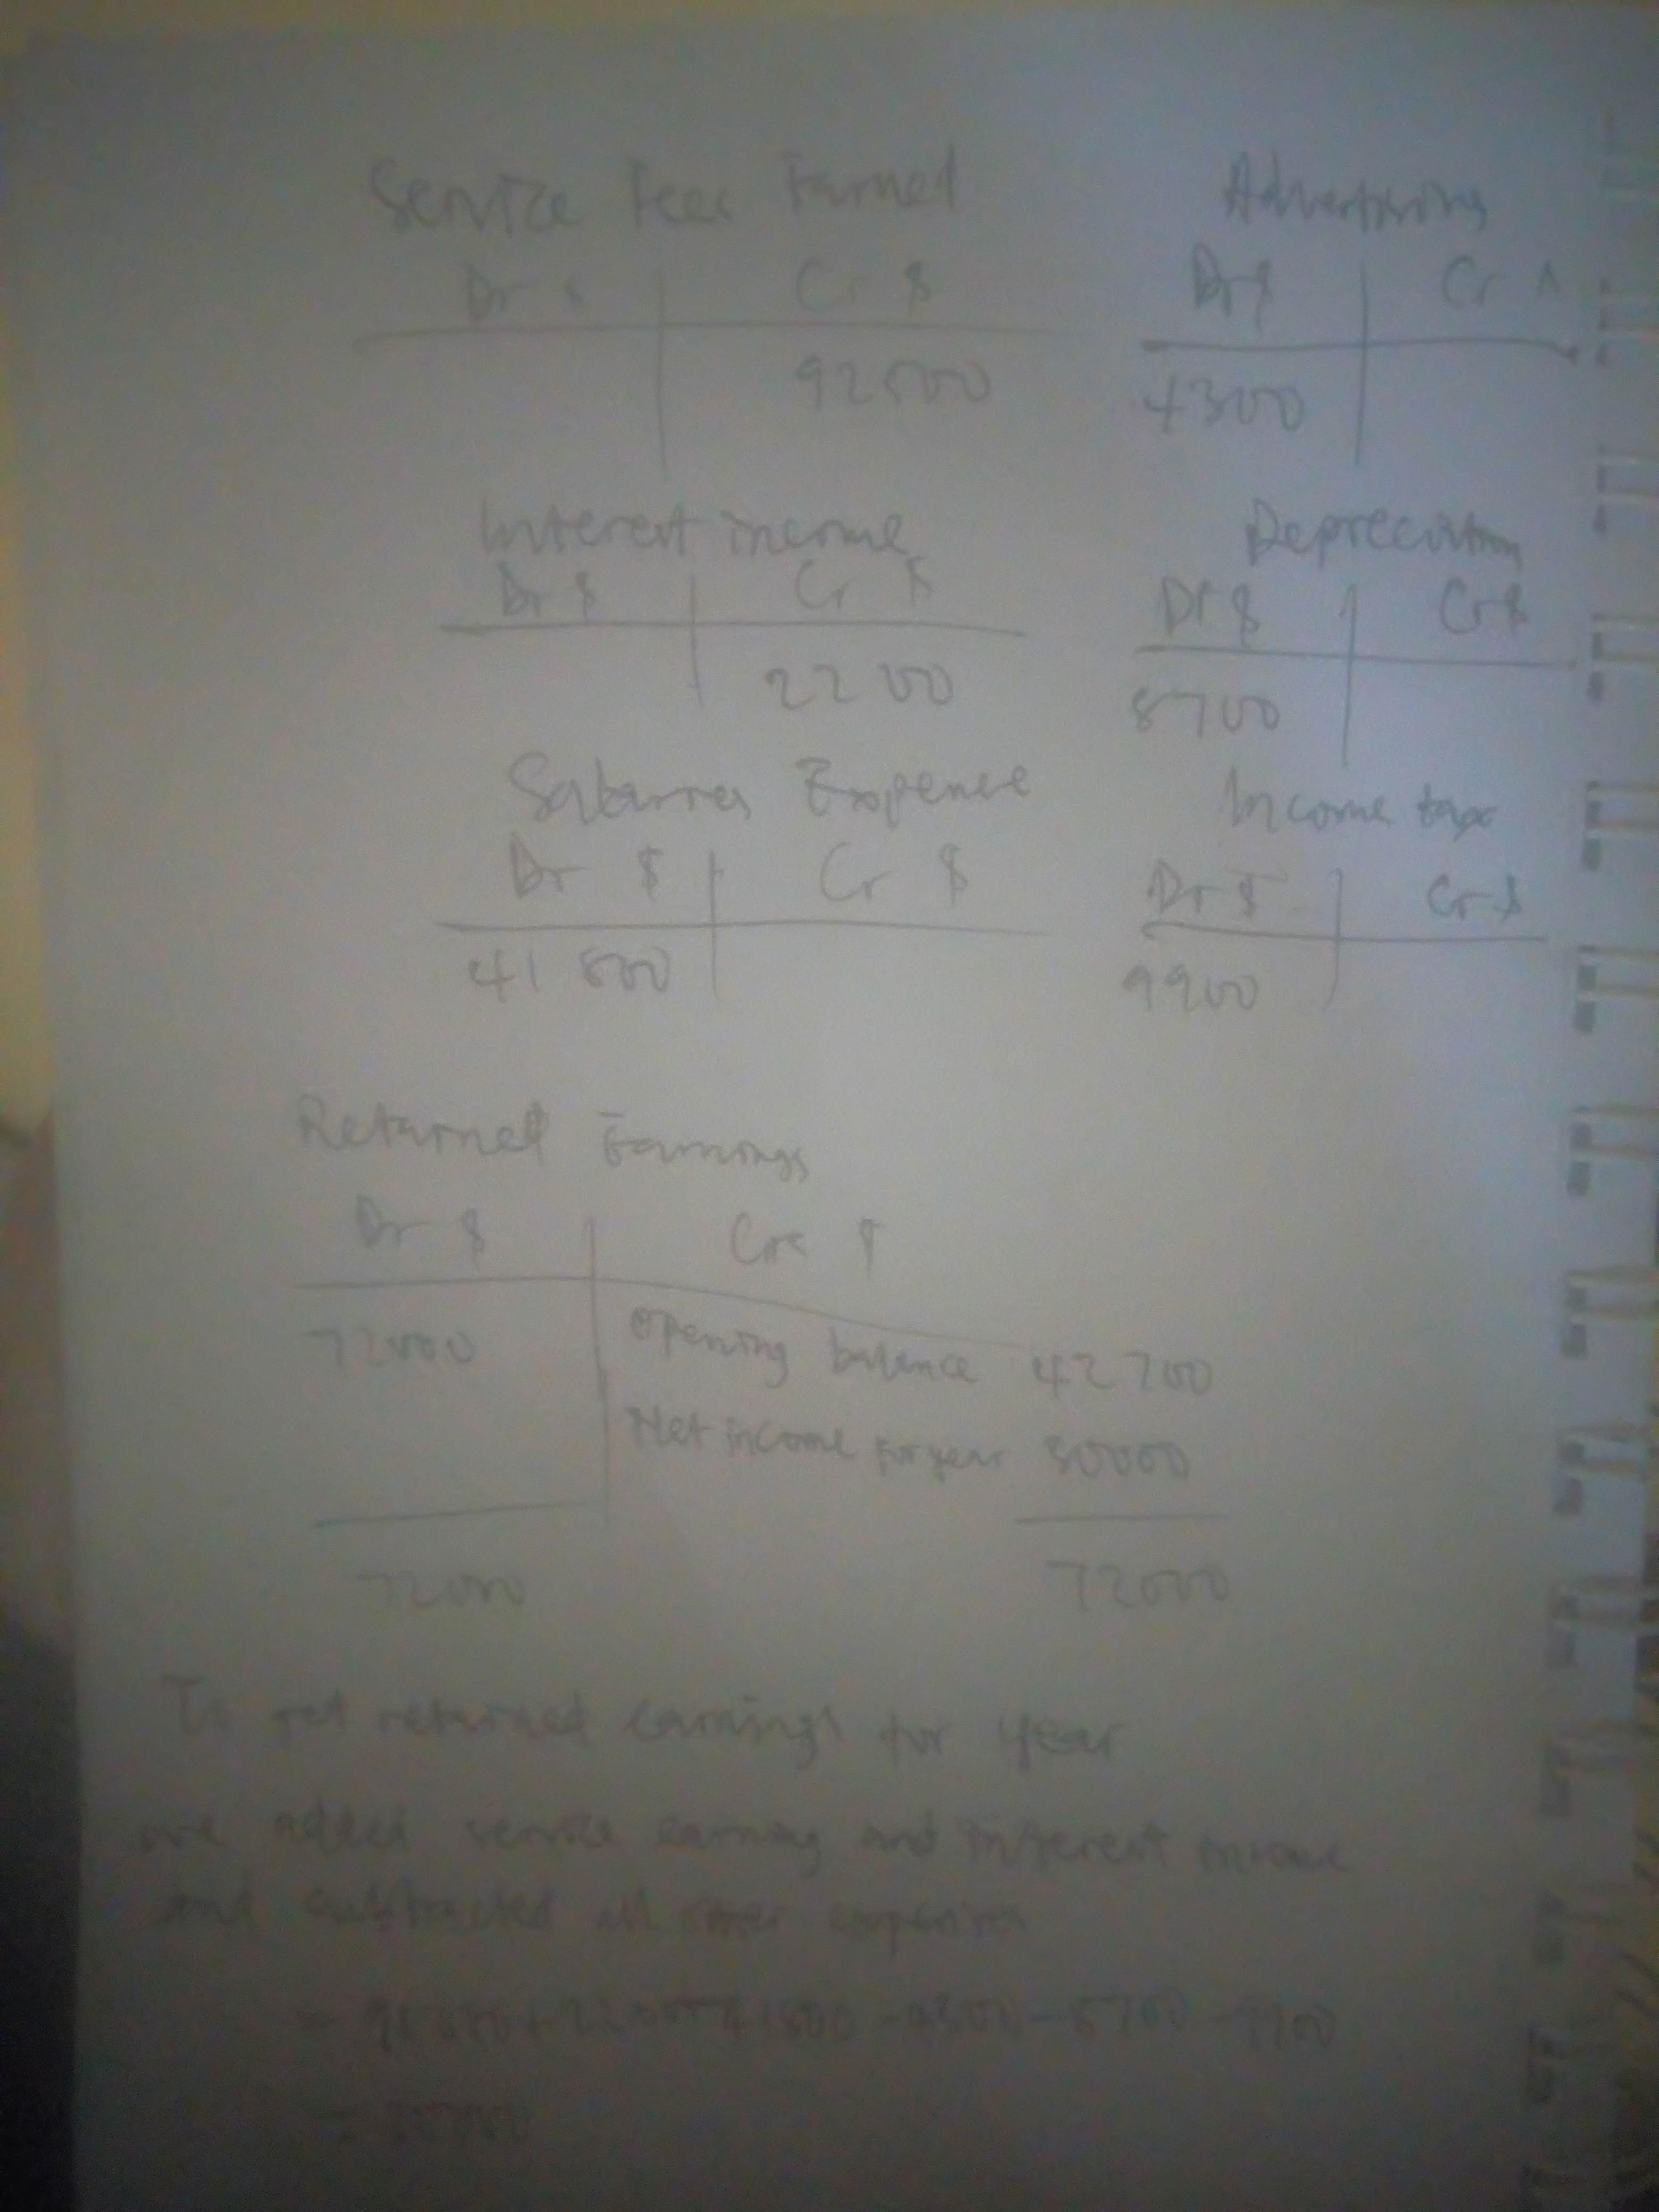 Service Fees Earned Advertising
Dr $ Cr $ Dr $ Cr $
92500 4300
Interest income Depreciation
Dr $ Cr $ Dr $ Cr $
2200 8700
Salaries Expense Income tax
Dr $ Cr $ Dr $ Cr $
41 800 9900
Retained Earnings
Dr $ Cr $
72000 Opening balance 42 700
Net income for year 30000
72000 72000
To get retained earnings for year
we added service earning and interest income
and subtracted all other expenses